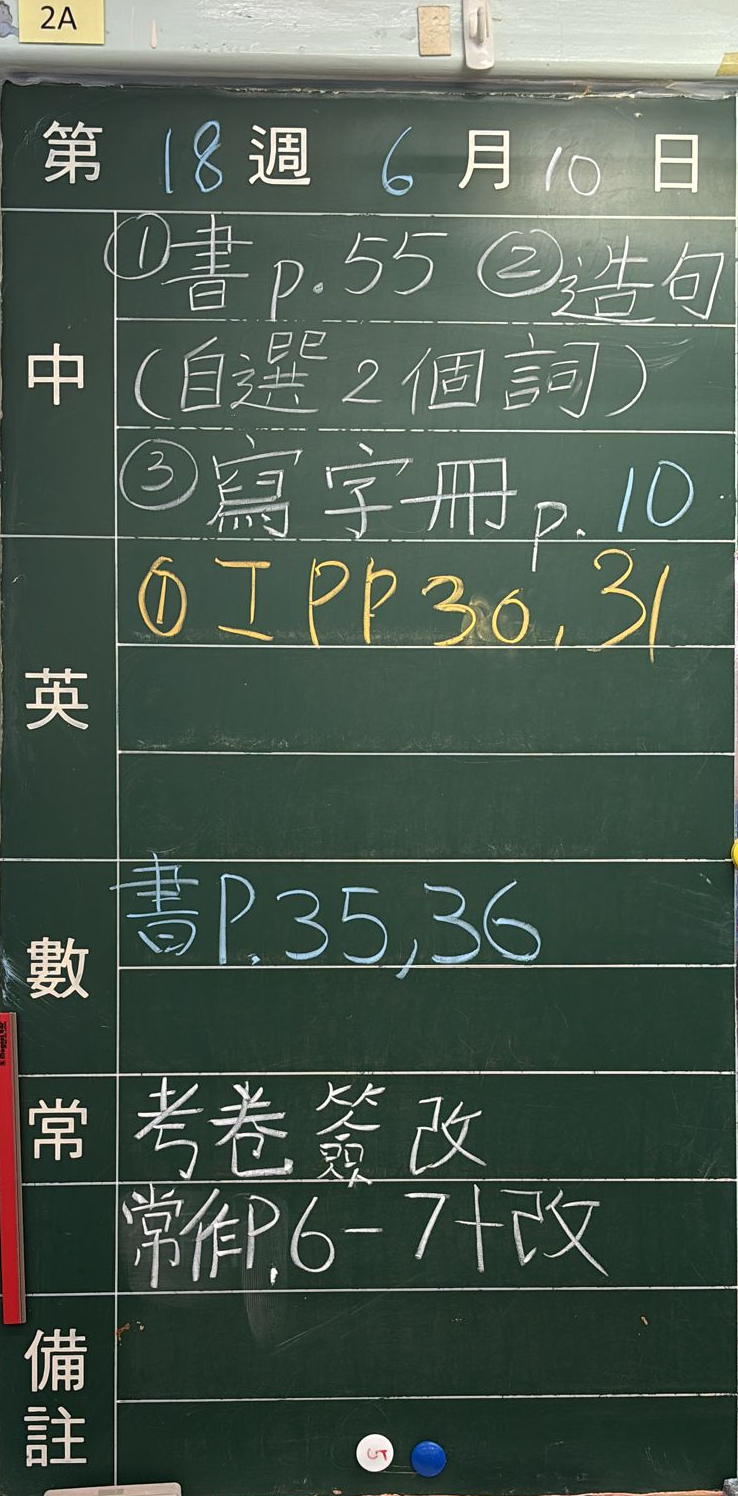 2A
第 18 週 6 月 10 日
中
①書 p.55 ②造句
(自選2個詞)
③寫字冊 p.10
英
① I PP 30, 31
數
書P.35,36
常
考卷簽改
常作P.6-7+改
備註
5